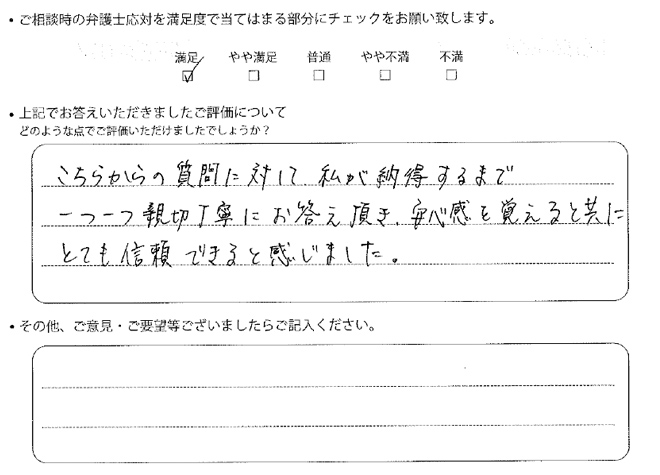 ・ご相談時の弁護士応対を満足度で当てはまる部分にチェックをお願い致します。
満足 やや満足 普通 やや不満 不満
☑ □ □ □ □
・上記でお答えいただきましたご評価について
どのような点でご評価いただけましたでしょうか？
こちらからの質問に対して 私が納得するまで
一つ一つ親切丁寧にお答え頂き、安心感を覚えると共に
とても信頼できると感じました。
・その他、ご意見・ご要望等ございましたらご記入ください。